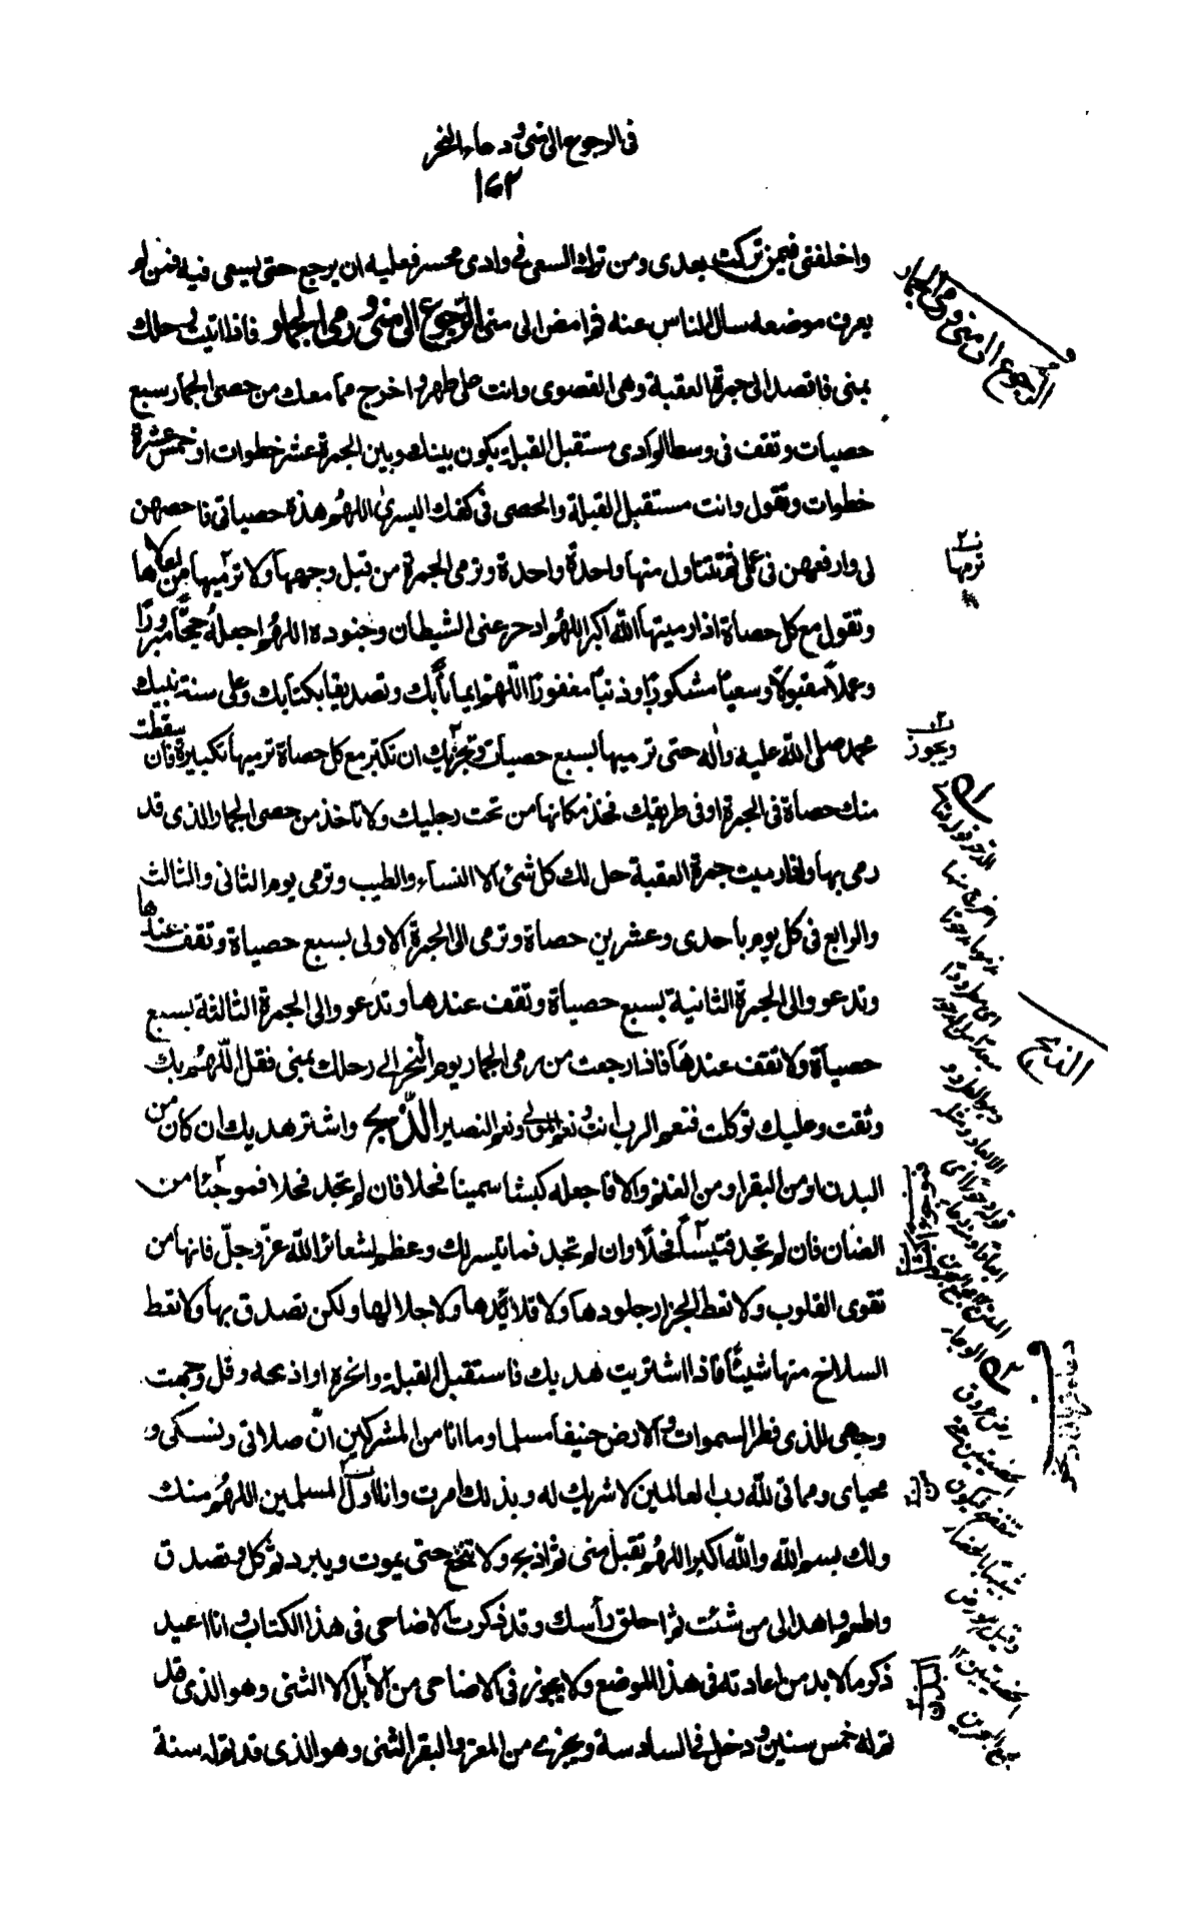 في الرجوع الى منى و دعاء النحر
١٦٢
واخلفني فيمن تركت بعدي ومن ترك السعي في وادي محسر فعليه ان يرجع حتى يسعى فيه فمن لم
يعرف موضعه سال الناس عنه ثم امض الى منى الرجوع الى منى و رمى الجمار فاذا اتيت رحلك
بمنى فاقصد الى جمرة العقبة وهي القصوى وانت على طهر واخرج مما معك من حصى الجمار سبع
حصيات وتقف في وسط الوادي مستقبل القبلة يكون بينك وبين الجمرة عشر خطوات او خمس عشرة
خطوات وتقول وانت مستقبل القبلة والحصى في كفك اليسرى اللهم هذه حصياتي فاحصهن
لي وارفعهن في عملي ثم تتناول منها واحدة واحدة وترمي الجمرة من قبل وجهها ولا ترميها من اعلاها
وتقول مع كل حصاة اذا رميتها الله اكبر اللهم ادحر عني الشيطان وجنوده اللهم اجعله حجّاً مبروراً
وعملاً مقبولاً وسعياً مشكوراً وذنباً مغفوراً اللهم ايماناً بك وتصديقاً بكتابك وعلى سنة نبيك
محمد صلى الله عليه واله حتى ترميها بسبع حصيات ويجزيك ان تكبر مع كل حصاة ترميها تكبيرة فان سقطت
منك حصاة في الجمرة او في طريقك فخذ مكانها من تحت رجليك ولا تاخذ من حصى الجمار الذي قد
رمي بها واذا رميت جمرة العقبة حل لك كل شئ الا النساء والطيب وترمي يوم الثاني والثالث
والرابع في كل يوم باحدى وعشرين حصاة وترمي الى الجمرة الاولى بسبع حصياة وتقف عندها
وتدعو والى الجمرة الثانية بسبع حصياة وتقف عندها وتدعو والى الجمرة الثالثة بسبع
حصياة ولا تقف عندها فاذا رجعت من رمي الجمار يوم النحر الى رحلك بمنى فقل اللهم بك
وثقت وعليك توكلت فنعم الرب انت ونعم المولى ونعم النصير الذّبح واشتر هديك ان كان من
البدن او من البقر او من الغنم والا فاجعله كبشا سمينا فحلا فان لم تجد فحلا فموجئا من
الضان فان لم تجد فتيساً فحلًا وان لم تجد فما تيسر لك وعظم شعائر الله عزّ وجلّ فانها من
تقوى القلوب ولا تعط الجزار جلودها ولا قلائدها ولا جلالها ولكن تصدق بها ولا تعط
السلاخ منها شيئاً فاذا اشتريت هديك فاستقبل القبلة وانحره او اذبحه وقل وجهت
وجهي للذي فطر السموات والارض حنيفاً مسلما وما انا من المشركين انّ صلاتي ونسكي و
محياي ومماتي لله رب العالمين لا شريك له وبذلك امرت وانا اول المسلمين اللهم منك
ولك بسم الله والله اكبر اللهم تقبل مني ثم اذبح ولا تنخع حتى يموت ويبرد ثم كل وتصدق
واطعم واهد الى من شئت ثم احلق رأسك وقد ذكرت الاضاحي في هذا الكتاب وانا اعيد
ذكر ما لا بد من اعادته في هذا الموضع ولا يجوز في الاضاحي من الابل الا الثني وهو الذي قد
تم له خمس سنين ودخل في السادسة ويجزي من المعز والبقر الثني وهو الذي قد تم له سنة
الرجوع الى منى و رمى الجمار
ترمها
ويجوز
الذبح